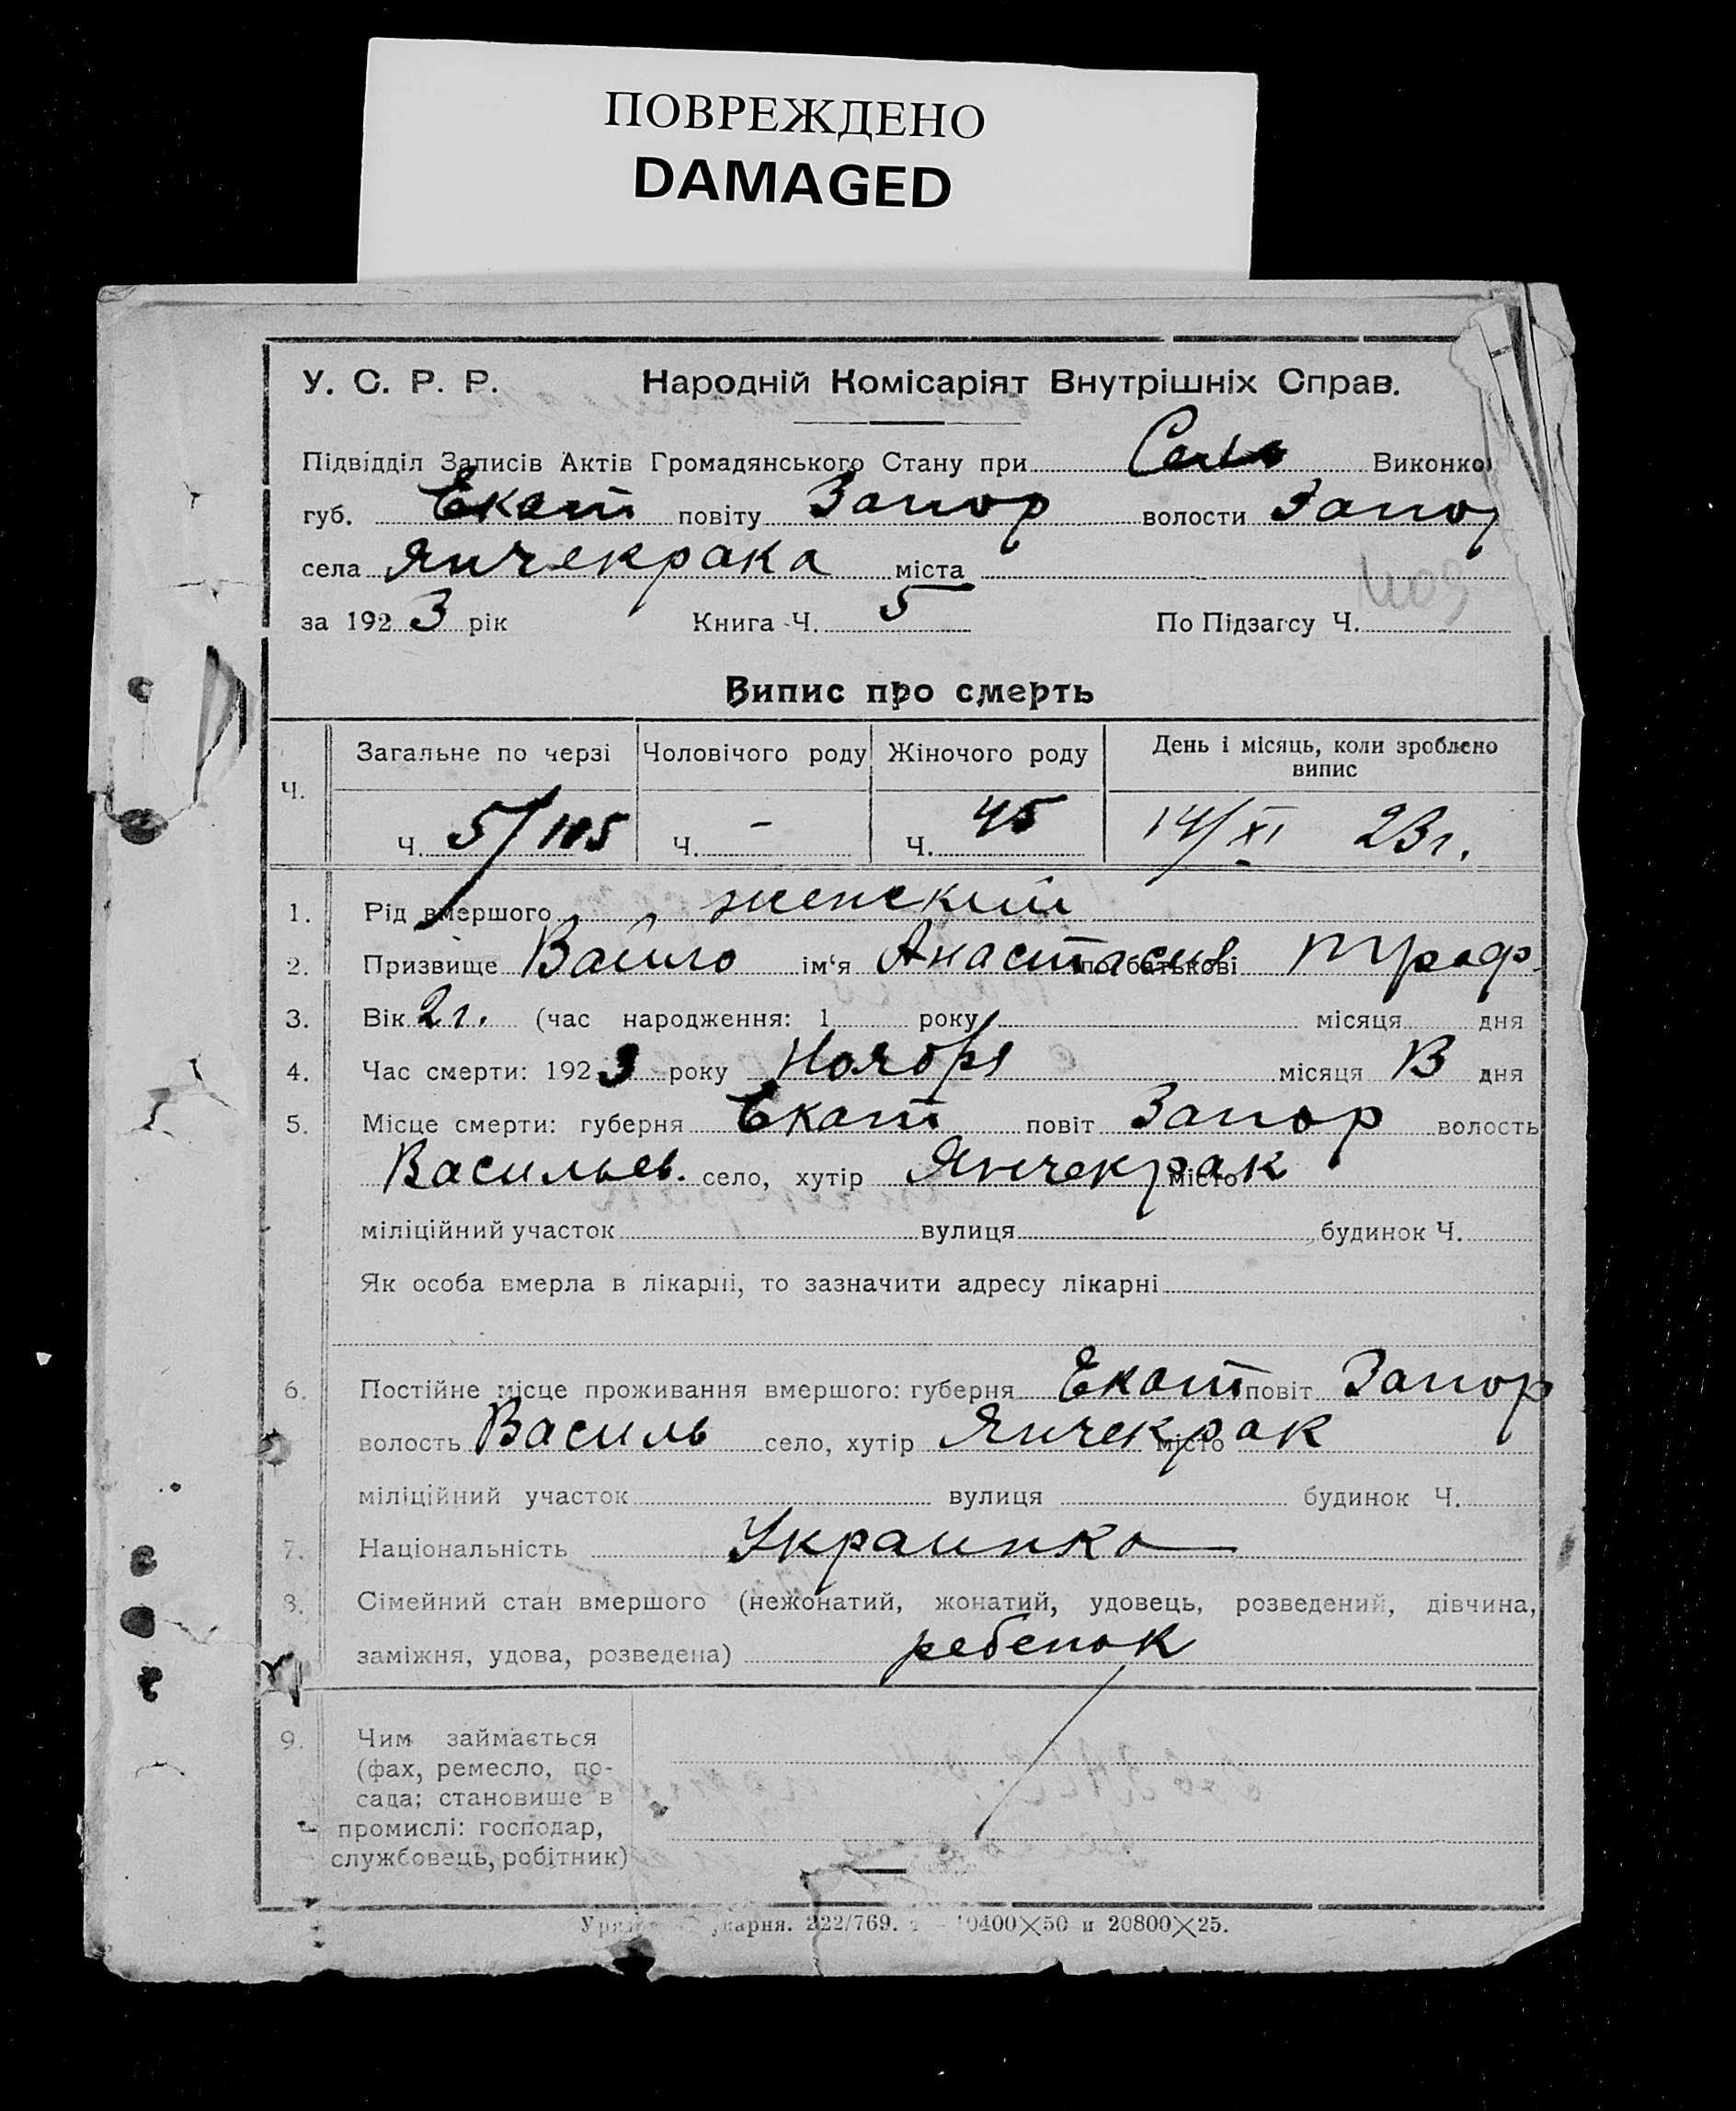 ПОВРЕЖДЕНО
DAMAGED
У. С. Р. Р. Народній Комісаріят Внутрішніх Справ.
Підвідділ Записів Актів Громадянського Стану при Сель Виконко
губ. Екат повіту Запор волости Запор
села Янчекрака міста
за 1923 рік Книга Ч. 5 По Підзагсу Ч.
Випис про смерть
Загальне по черзі Чоловічого роду Жіночого роду День і місяць, коли зроблено
випис
Ч.
Ч. 5/105 Ч. - Ч. 45 14/XI 23г.
1. Рід вмершого женский
2. Призвище ім‘я Анастасия по батькові Троф
3. Вік 2г. (час народження: 1 року місяця дня
4. Час смерти: 1923 року Ноября місяця 13 дня
5. Місце смерти: губерня Екат повіт Запор волость
Васильев. село, хутір Янчекрак місто
міліційний участок вулиця будинок Ч.
Як особа вмерла в лікарні, то зазначити адресу лікарні
6. Постійне місце проживання вмершого: губерня Екат повіт Запор
волость Василь село, хутір Янчекрак місто
міліційний участок вулиця будинок Ч.
7. Національність Украинка
8. Сімейний стан вмершого (нежонатий, жонатий, удовець, розведений, дівчина,
заміжня, удова, розведена) ребенок
9. Чим займається
(фах, ремесло, по-
сада; становище в
промислі: господар,
службовець, робітник)
222/769. 20800×25.